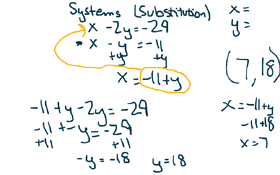 Systems (Substitution)
x - 2y = -29
x - y = -11
+y +y
x = -11+y
-11+y-2y=-29
-11 + -y = -29
+11 +11
-y = -18 y = 18
x =
y =
(7,18)
x = -11+y
-11+18
x = 7